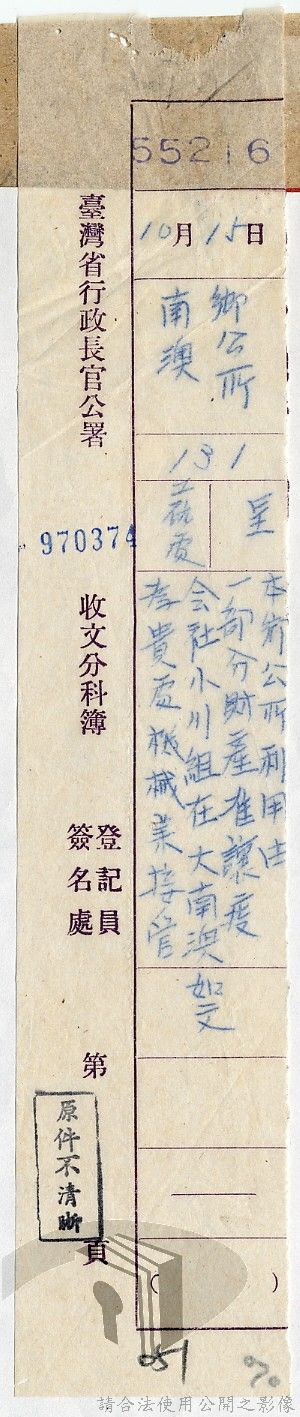 55216
10月15日
鄉公所
南澳
131
呈
工礦處
本鄉公所利用
一部分財產准讓度
会社小川組在大南澳
貴處機械業接管
如文
臺灣省行政長官公署
970374
收文分科簿
登記員
簽名處
第
頁
原件不清晰
( )
請合法使用公開之影像